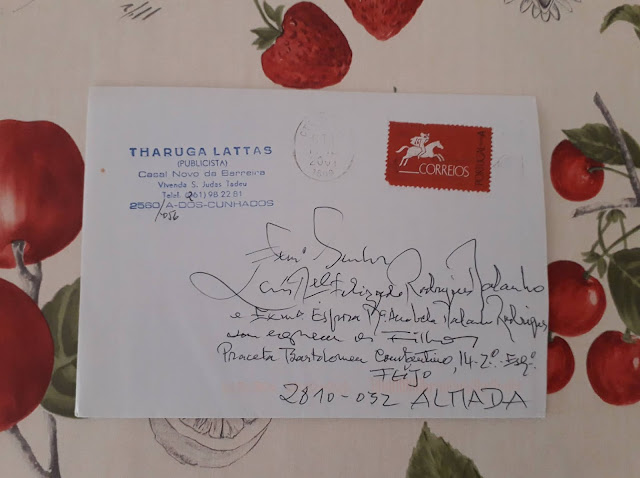 THARUGA LATTAS
(PUBLICISTA)
Casal Novo da Barreira
Vivenda S. Judas Tadeu
Telef. (261) 98 22 81
2560/A-DOS-CUNHADOS
056
CORREIOS
PORTUGAL
Exmo Senhor
Luís Filipe Rodrigues Talanho
e Exma Esposa
sem esquecer os Filhos
Praceta Bartolomeu Constantino, 14-2º. Esqº.
FEIJÓ
2810-032 ALMADA